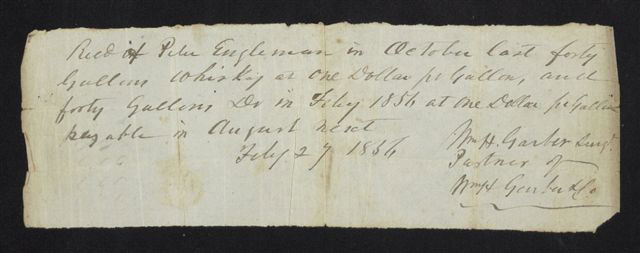 Recd of Peter Engleman in October last forty
Gallons Whisky at One Dollar pr Gallon, and
forty Gallons Do in Feby 1856 at One Dollar pr Gallon
payable in August next
Feby 27 1856
Wm H. Garber
Partner of
Wm H Garber & Co